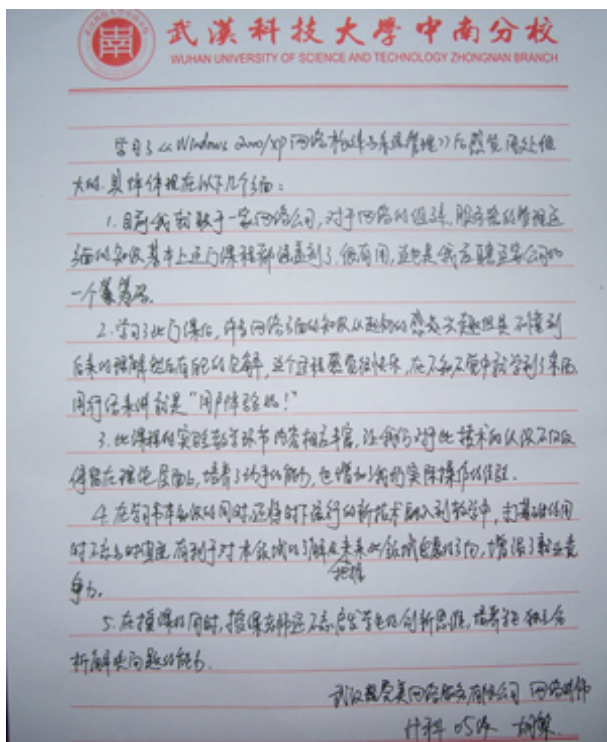 武漢科技大學中南分校
WUHAN UNIVERSITY OF SCIENCE AND TECHNOLOGY ZHONGNAN BRANCH
学习了《Windows 2000/xp 网络构建与系统管理》后感觉用处很
大的.具体体现在以下几个方面:
1.目前我就职于一家网络公司,对于网络的组建,服务器的管理这
方面的知识基本上这门课程都涵盖到了,很有用,这也是我应聘这家公司的
一个筹码.
2.学习了此门课后,许多网络方面的知识从起初的感兴趣但是不懂到
后来的理解然后有自己的见解,这个过程感觉很快乐,在不知不觉中就学到了东西.
用行话来讲就是"用户体验好!"
3.此课程的实验教学环节内容相当丰富,让我们对于此技术的认识不仅仅
停留在理论层面上,培养了动手的能力,也增加了我们实际操作的经验.
4.在学习书本知识的同时,还将时下流行的新技术融入到教学中,打基础的同
时不忘与时俱进,有利于对本领域的了解及未来此领域发展的方向,增强了就业竞
把握
争力.
5.在授课的同时,授课老师还不忘启发学生的创新思维,培养学生独立分
析解决问题的能力.
武汉 完美网络服务有限公司 网络
计科 05级 胡